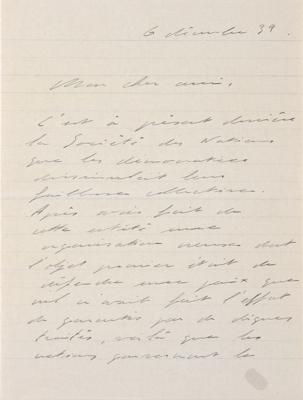 6 décembre 39.
Mon cher ami,
C'est à présent derrière
la Société des Nations
que les démocraties
dissimulent leur
faillite collective.
Après avoir fait de
cette entité une
organisation dont
l'objet premier était de
défendre une paix que
nul n'avait fait l'effort
de garantir par de dignes
traités, voilà que les
nations garantissent la